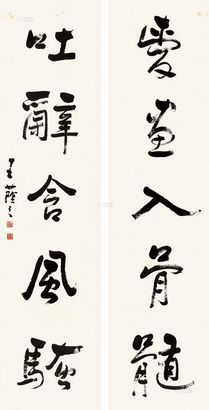 愛画入骨髓
吐辭含風騷
王蘧常